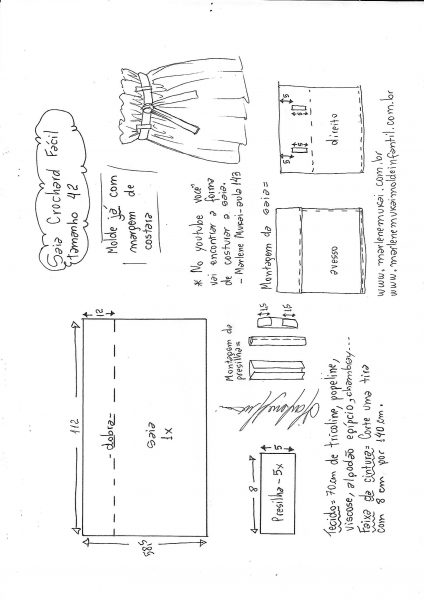 Saia Crochard Fácil
tamanho 42
Molde já com
margem de
costura
* No youtube você
vai encontrar a forma
de costurar a saia.
- Marlene Mukai - aula 143
Montagem da saia =
avesso
direito
5
5
www.marlenemukai.com.br
www.marlenemukaimoldeinfantil.com.br
112
12
dobra
saia
1x
58,5
Montagem da
presilha =
1,5
1,5
8
5
Presilha - 5x
Tecido = 70cm de tricoline, popeline,
viscose, algodão egípcio, chambray...
Faixa da cintura = Corte uma tira
com 8 cm por 140 cm.